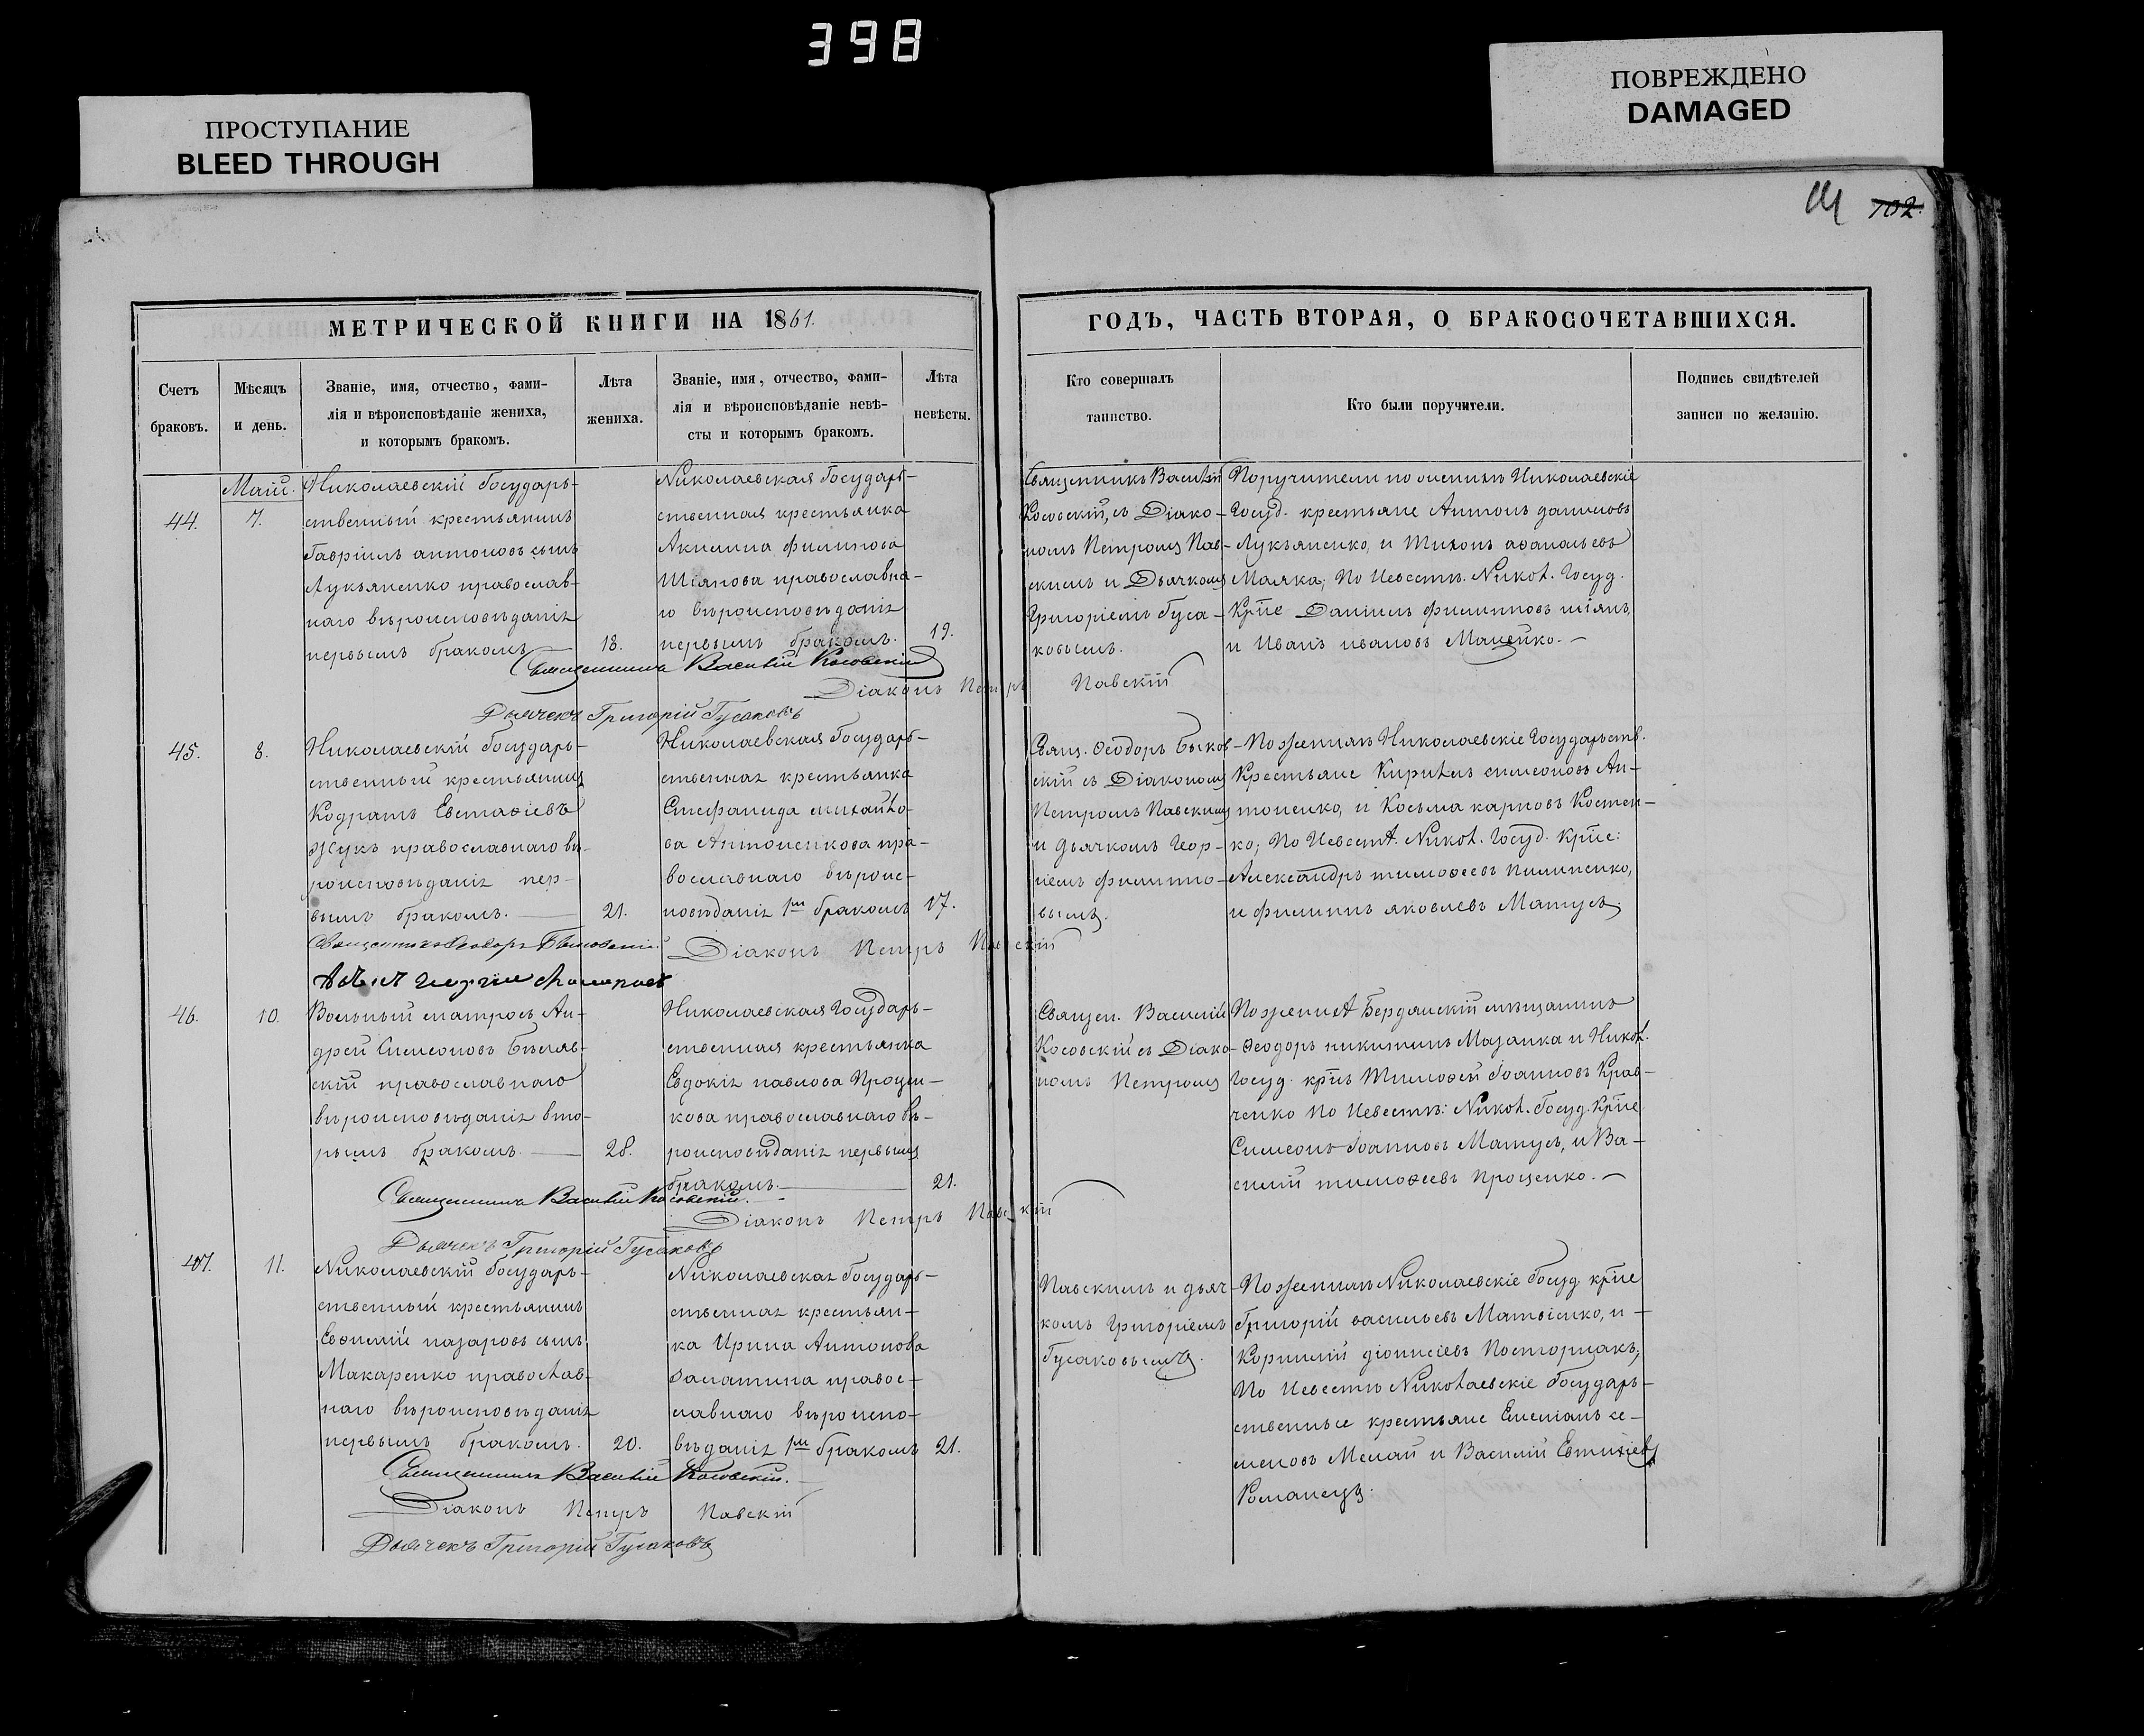 398
ПРОСТУПАНИЕ
BLEED THROUGH
ПОВРЕЖДЕНО
DAMAGED
102.
МЕТРИЧЕСКОЙ КНИГИ НА 1861.
Счетъ
браковъ.
Мѣсяцъ
и день.
Званіе, имя, отчество, фами-
лія и вѣроисповѣданіе жениха,
и которымъ бракомъ.
Лѣта
жениха.
Званіе, имя, отчество, фами-
лія и вѣроисповѣданіе невѣ-
сты и которымъ бракомъ.
Лѣта
невѣсты.
ГОДЪ, ЧАСТЬ ВТОРАЯ, О БРАКОСОЧЕТАВШИХСЯ.
Кто совершалъ
таинство.
Кто были поручители.
Подпись свидѣтелей
записи по желанію.
44.
Маій.
7.
Николаевскій Государь-
ственный крестьянинъ
Гавріилъ антоновъ сынъ
Лукьяненко православ-
наго вѣроисповѣданія
первымъ бракомъ
18.
Николаевская Государ-
ственная крестьянка
Акилина филипова
Шіянова православна-
го вѣроисповѣданія
первымъ бракомъ.
19.
Священникъ Василій
Косовскій, съ Діако-
номъ Петромъ Пав-
скимъ и Дьячкомъ
Григоріемъ Гуса-
ковымъ.
Поручители по женихѣ Николаевскіе
Госуд. крестьяне Антонъ даниловъ
Лукьяненко, и Тихонъ аѳанасьевъ
Маляка; По Невестѣ. Никол. Госуд.
Крте Даніилъ филипповъ шіянъ,
и Иванъ ивановъ Мацейко.
Священникъ Василій Косовскій
Діаконъ Петръ Павскій
Дьячекъ Григорій Гусаковъ
45.
8.
Николаевскій Государь-
ственный крестьянинъ
Кодратъ Евстаѳіевъ
Жукъ православнаго вѣ-
роисповѣданія пер-
вымъ бракомъ.
21.
Николаевская Государ-
ственная крестьянка
Стефанида михайло-
ва Антоненкова пра-
вославнаго вѣроис-
повѣданія 1мъ бракомъ
17.
Свящ. Ѳеодоръ Быков-
скій съ Діакономъ
Петромъ Павскимъ
и дьячкомъ Геор-
гіемъ филиппо-
вымъ.
По женихѣ Николаевскіе Государств.
Крестьяне Кирилъ симеоновъ Ан-
тоненко, и Косьма карповъ Костен-
ко; По Невестѣ. Никол. Госуд. Крте:
Александръ тимоѳеевъ Пилипенко,
и филиппъ яковлевъ Матусъ.
Священникъ Ѳеодоръ Быковскій.
Діаконъ Петръ Павскій
46.
10.
Вольный матросъ Ан-
дрей Симеоновъ Бѣляв-
скій православнаго
вѣроисповѣданія вто-
рымъ бракомъ
28.
Николаевская Государь-
ственная крестьянка
Евдокія павлова Процен-
кова православнаго вѣ-
роисповѣданія первымъ
бракомъ.
21.
Священ. Василій
Косовскій съ Діако-
номъ Петромъ
По женихѣ Бердянскій мѣщанинъ
Ѳеодоръ никитинъ Мазанка и Никол.
Госуд. крнъ Тимоѳей Іоанновъ Крав-
ченко По Невестѣ: Никол. Госуд. Крте
Симеонъ Іоанновъ Матусъ, и Ва-
силій тимоѳеевъ Проценко.
Священникъ Василій Косовскій.
Діаконъ Петръ Павскій
Дьячекъ Григорій Гусаковъ
47.
11.
Николаевскій Государь-
ственный крестьянинъ
Евѳимій назаровъ сынъ
Макаренко православ-
наго вѣроисповѣданія
первымъ бракомъ.
20.
Николаевская Государь-
ственная крестьян-
ка Ирина Антонова
Заматина правос-
лавнаго вѣроиспо-
вѣданія 1мъ бракомъ
21.
Павскимъ и дьяч-
комъ Григоріемъ
Гусаковымъ.
По женихѣ Николаевскіе Госуд крте
Григорій васильевъ Матвіенко, и
Корнилій діонисіевъ Посторнакъ,
По Невестѣ Николаевскіе Государь-
ственные крестьяне Емеліанъ се-
меновъ Мелай и Василій Евтихіевъ
Романецъ.
Священникъ Василій Косовскій.
Діаконъ Петръ Павскій
Дьячекъ Григорій Гусаковъ